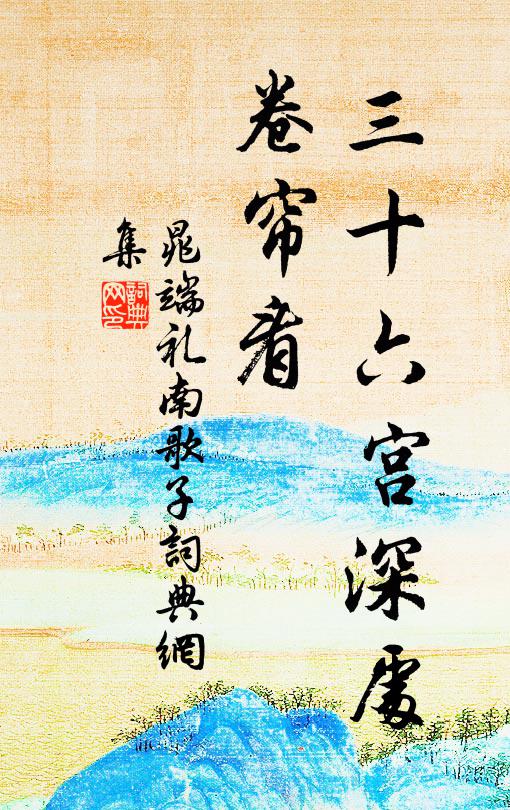 三十六宫深處
卷帘看
晁端礼南歌子詞典網
集
詞典
网印